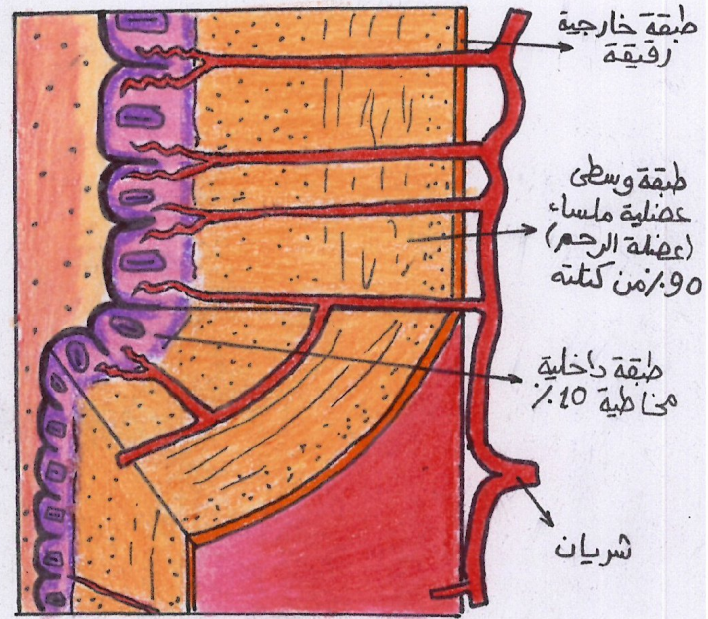 طبقة خارجية
رقيقة
طبقة وسطى
عضلية ملساء
(عضلة الرحم)
90٪ من كتلته
طبقة داخلية
مخاطية 10٪
شريان